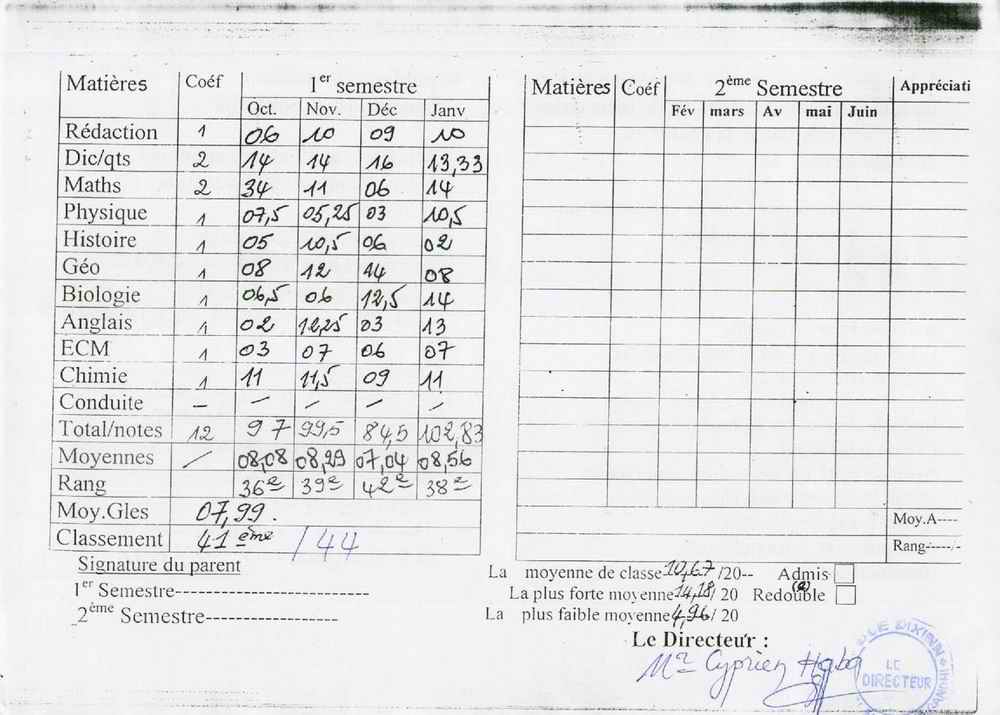 Matières Coéf 1er semestre
Oct. Nov. Déc Janv
Rédaction 1 06 10 09 10
Dic/qts 2 14 14 16 13,33
Maths 2 34 11 06 14
Physique 1 07,5 05,25 03 10,5
Histoire 1 05 10,5 06 02
Géo 1 08 12 14 08
Biologie 1 06,5 06 12,5 14
Anglais 1 02 12,25 03 13
ECM 1 03 07 06 07
Chimie 1 11 11,5 09 11
Conduite – / / / /
Total/notes 12 97 99,5 84,5 102,83
Moyennes / 08,08 08,29 07,04 08,56
Rang 36e 39e 42e 38e
Moy.Gles 07,99.
Classement 41ème /44
Signature du parent
1er Semestre-------------------------
2ème Semestre-----------------
Matières Coéf 2ème Semestre Appréciati
Fév mars Av mai Juin
Moy.A----
Rang-----/-
La moyenne de classe 10,67/20-- Admis
La plus forte moyenne 14,18/20 Redouble (e)
La plus faible moyenne 4,96/20
Le Directeur :
Mr Cyprien Haba
LE
DIRECTEUR